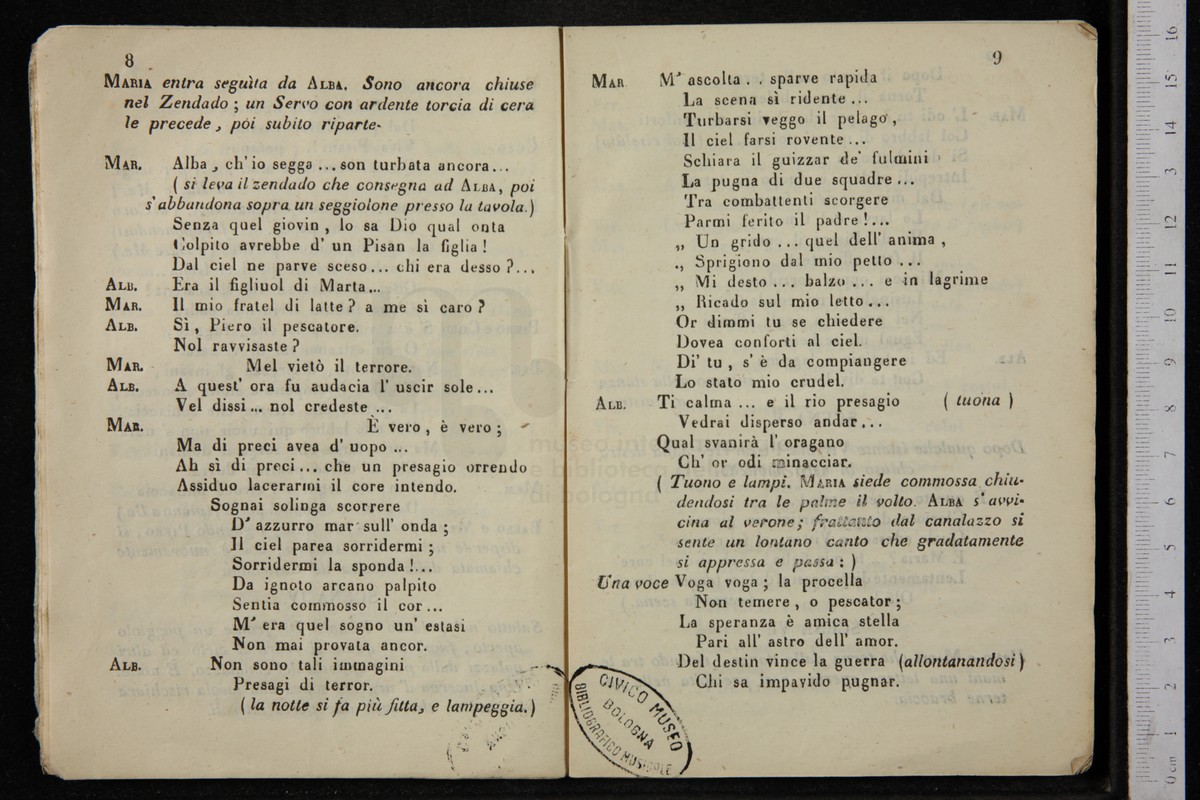 8
MARIA entra seguìta da ALBA. Sono ancora chiuse
nel Zendado ; un Servo con ardente torcia di cera
le precede , pòi subito riparte.
MAR. Alba , ch' io segga ... son turbata ancora...
( si leva il zendado che consegna ad ALBA, poi
s' abbandona sopra un seggiolone presso la tavola.)
Senza quel giovin , lo sa Dio qual onta
Colpito avrebbe d' un Pisan la figlia !
Dal ciel ne parve sceso... chi era desso ?...
ALB. Era il figliuol di Marta...
MAR. Il mio fratel di latte ? a me sì caro ?
ALB. Sì , Piero il pescatore.
Nol ravvisaste ?
MAR. Mel vietò il terrore.
ALB. A quest' ora fu audacia l' uscir sole...
Vel dissi... nol credeste ...
MAR. È vero , è vero ;
Ma di preci avea d' uopo ...
Ah sì di preci... che un presagio orrendo
Assiduo lacerarmi il core intendo.
Sognai solinga scorrere
D' azzurro mar sull' onda ;
Il ciel parea sorridermi ;
Sorridermi la sponda !...
Da ignoto arcano palpito
Sentia commosso il cor ...
M' era quel sogno un' estasi
Non mai provata ancor.
ALB. Non sono tali immagini
Presagi di terror.
( la notte si fa più fitta, e lampeggia.)
9
MAR M' ascolta . . sparve rapida
La scena sì ridente ...
Turbarsi veggo il pelago ,
Il ciel farsi rovente ...
Schiara il guizzar de' fulmini
La pugna di due squadre ...
Tra combattenti scorgere
Parmi ferito il padre !...
„ Un grido ... quel dell' anima ,
„ Sprigiono dal mio petto ...
„ Mi desto ... balzo ... e in lagrime
„ Ricado sul mio letto ...
Or dimmi tu se chiedere
Dovea conforti al ciel.
Di' tu , s' è da compiangere
Lo stato mio crudel.
ALB. Ti calma ... e il rio presagio ( tuona )
Vedrai disperso andar...
Qual svanirà l' oragano
Ch' or odi minacciar.
( Tuono e lampi. MARIA siede commossa chiu-
dendosi tra le palme il volto. ALBA s' avvi-
cina al verone ; frattanto dal canalazzo si
sente un lontano canto che gradatamente
si appressa e passa : )
Una voce Voga voga ; la procella
Non temere , o pescator ;
La speranza è amica stella
Pari all' astro dell' amor.
Del destin vince la guerra (allontanandosi)
Chi sa impavido pugnar.
CIVICO MUSEO
BIBLIOGRAFICO MUSICALE
BOLOGNA